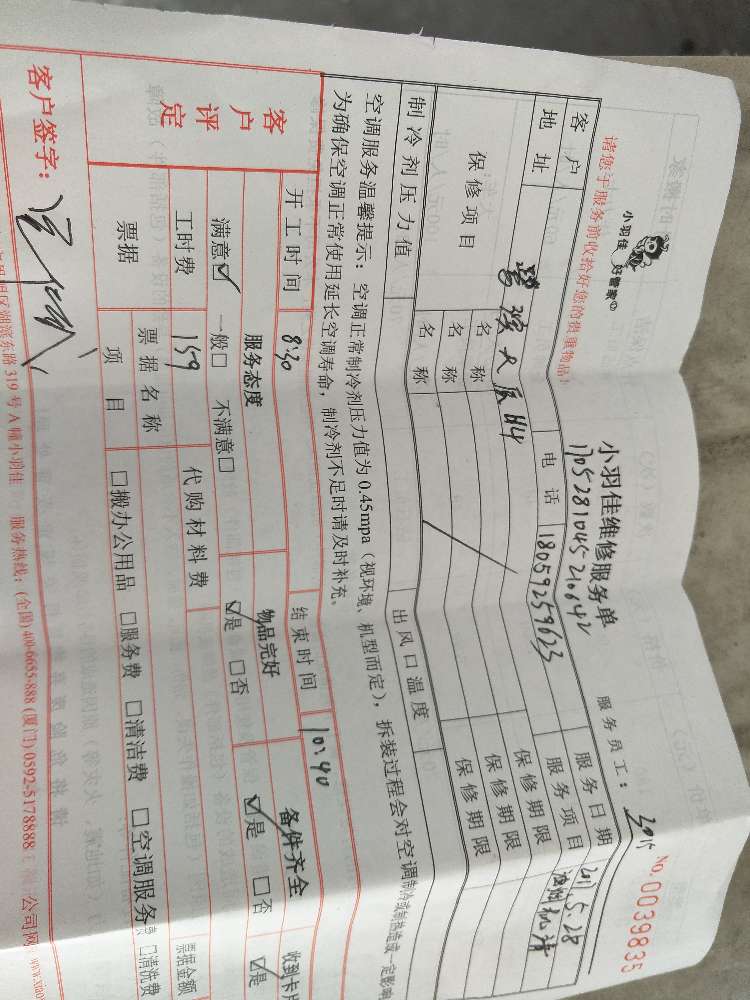 小羽佳 好管家
小羽佳维修服务单
No.0039835
请您于服务前收拾好您的贵重物品!
1705281045210642
服务员工:
客户地址
电话 18059259623
服务日期 2017.5.28
服务项目
保修项目
名称
保修期限
名称
保修期限
名称
保修期限
制冷剂压力值
出风口温度
空调服务温馨提示：空调正常制冷剂压力值为 0.45mpa（视环境、机型而定），拆装过程会对空调制冷或制热造成一定影响
为确保空调正常使用延长空调寿命，制冷剂不足时请及时补充。
客户评定
开工时间 8:30
结束时间 10:40
服务态度
物品完好
备件齐全
收到卡片
满意☑ 一般□ 不满意□
☑是 □否
☑是 □否
☑是
工时费 159
代购材料费
票据
票据名称
票据金额
项目
□搬办公用品 □服务费 □清洁费 □空调服务 □清洗费
客户签字：
湖滨东路 319 号 A 幢小羽佳 服务热线：(全国)400-6655-888 (厦门)0592-5178888 公司网